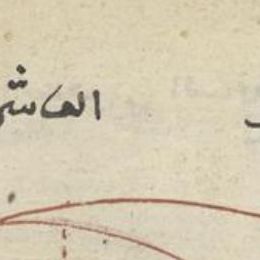 العاشر